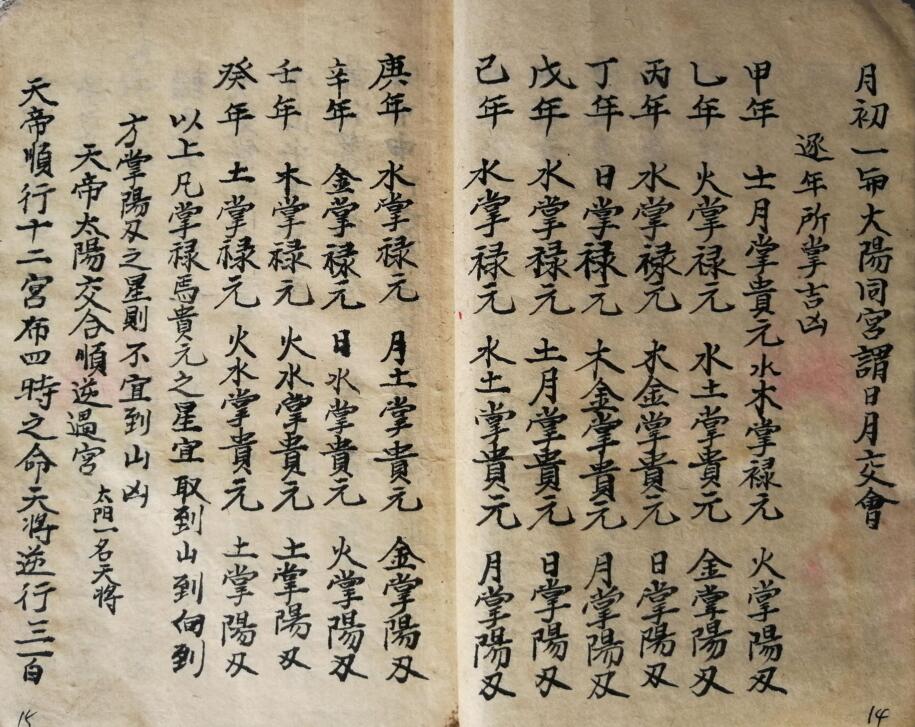 月初一每太陽同宮謂日月交會
逐年所掌吉凶
甲年 土月掌貴元 水木掌禄元 火掌陽刃
乚年 火掌禄元 水土掌貴元 金掌陽刃
丙年 水掌禄元 水金掌貴元 日掌陽刃
丁年 日掌禄元 木金掌貴元 月掌陽刃
戊年 水掌禄元 土月掌貴元 日掌陽刃
己年 水掌禄元 水土掌貴元 月掌陽刃
14
庚年 水掌禄元 月土掌貴元 金掌陽刃
辛年 金掌禄元 日水掌貴元 火掌陽刃
壬年 木掌禄元 火水掌貴元 土掌陽刃
癸年 土掌禄元 火水掌貴元 土掌陽刃
以上凡掌禄馬貴元之星宜取到山到向到
方掌陽刃之星則不宜到山凶
天帝太陽交合順逆過宮 太阳一名天將
天帝順行十二宮布四時之命天將逆行三百
15